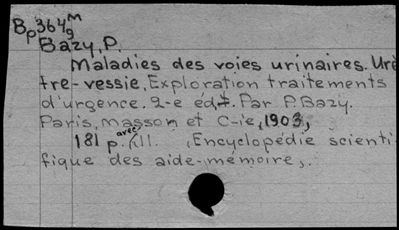 Bp364 m/g
Bazy, P.
Maladies des voies urinaires. Urè
tre-vessie. Exploration traitements
d'urgence. 2-e édt. Par P. Bazy.
Paris, Masson et C-ie, 1903,
181 p. avec ill. , Encyclopédie scienti-
fique des aide-mémoire,.